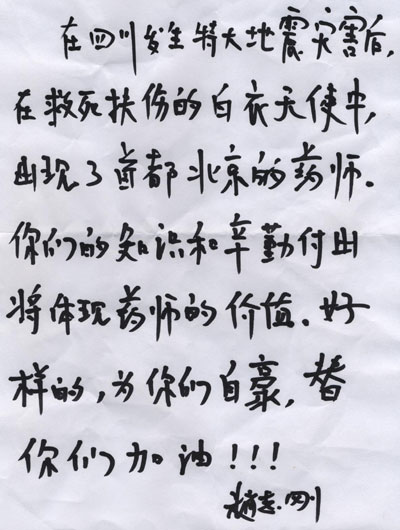 在四川发生特大地震灾害后,
在救死扶伤的白衣天使中,
出现了首都北京的药师.
你们的知识和辛勤付出
将体现药师的价值.好
样的,为你们自豪,替
你们加油!!!
四川